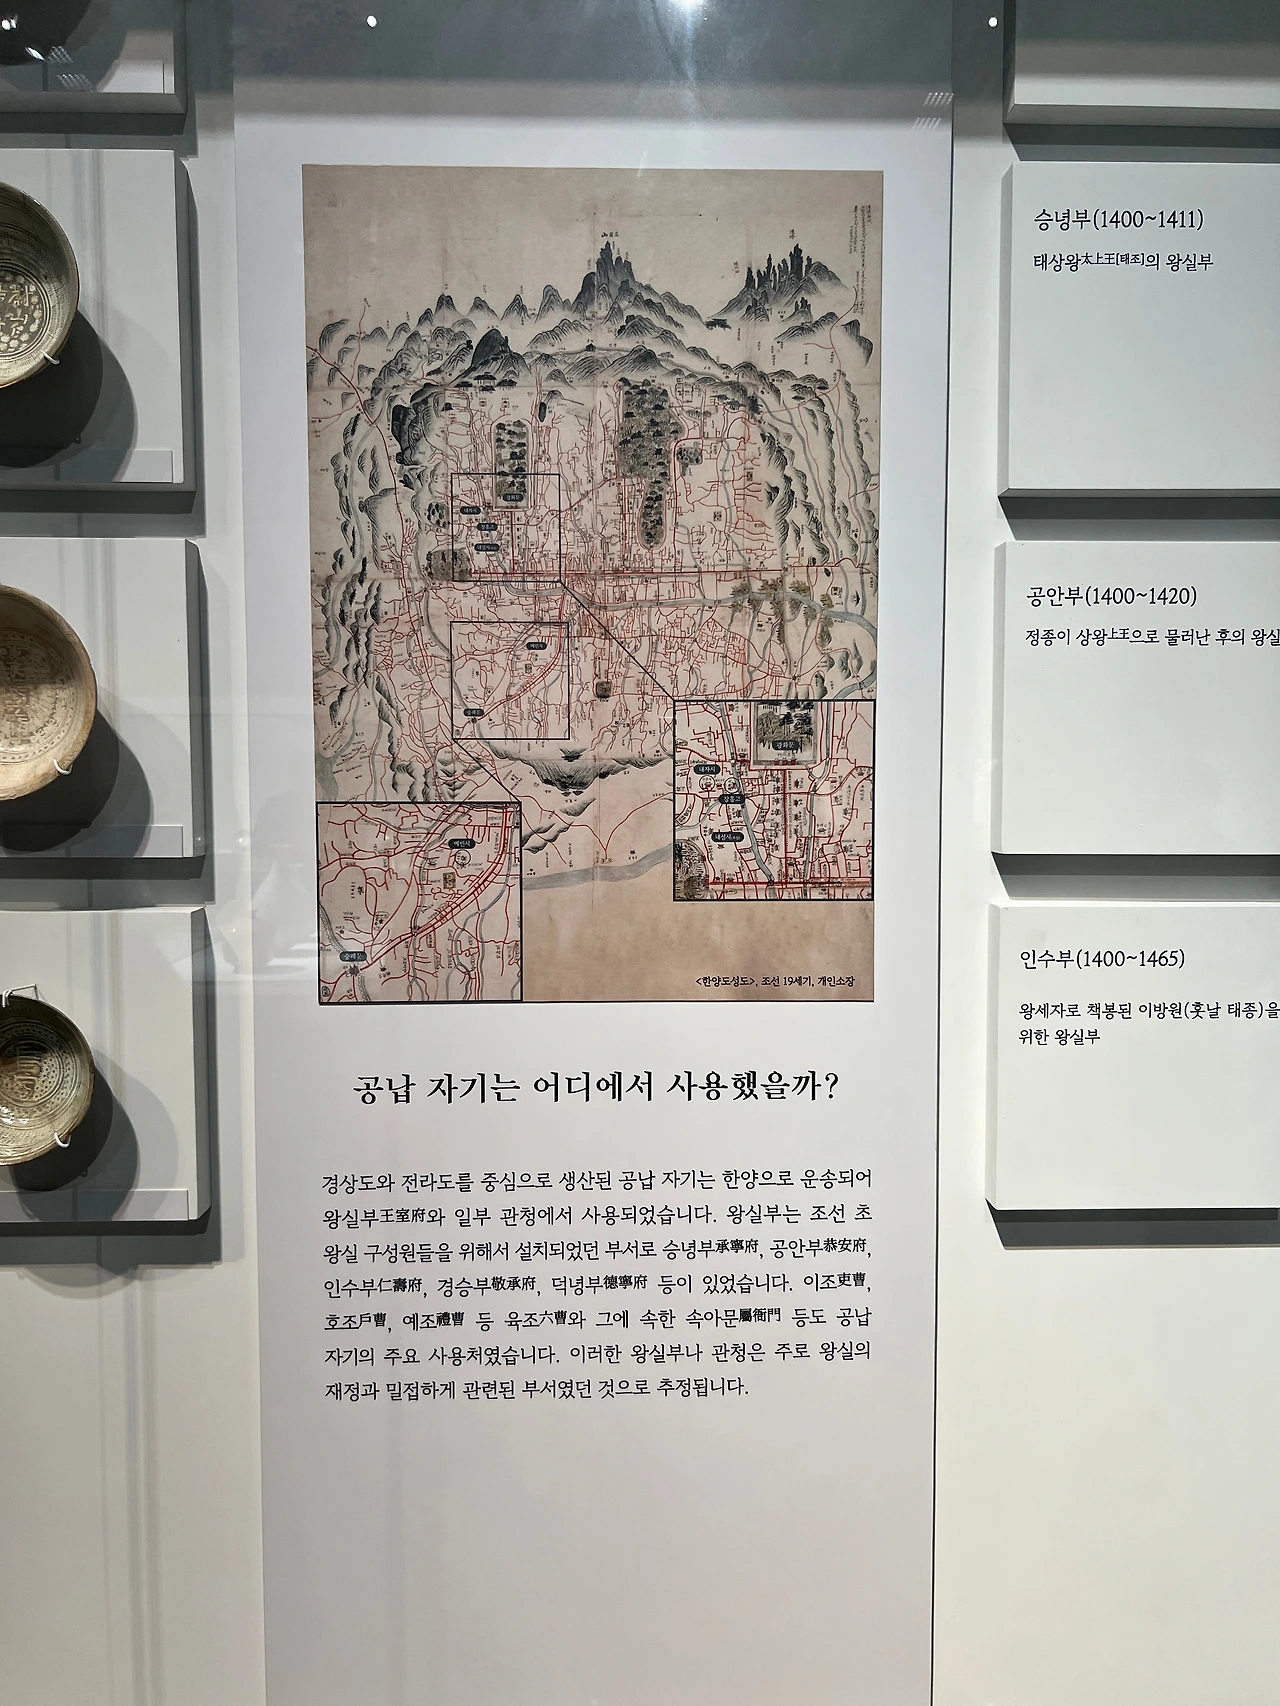 광화문
내자시
장흥고
내섬시
예빈시
숭례문
광화문
내자시
장흥고
내섬시
예빈시
숭례문
<한양도성도>, 조선 19세기, 개인소장
공납 자기는 어디에서 사용했을까?
경상도와 전라도를 중심으로 생산된 공납 자기는 한양으로 운송되어
왕실부王室府와 일부 관청에서 사용되었습니다. 왕실부는 조선 초
왕실 구성원들을 위해서 설치되었던 부서로 승녕부承寧府, 공안부恭安府,
인수부仁壽府, 경승부敬承府, 덕녕부德寧府 등이 있었습니다. 이조吏曹,
호조戶曹, 예조禮曹 등 육조六曹와 그에 속한 속아문屬衙門 등도 공납
자기의 주요 사용처였습니다. 이러한 왕실부나 관청은 주로 왕실의
재정과 밀접하게 관련된 부서였던 것으로 추정됩니다.
승녕부(1400~1411)
태상왕太上王[태조]의 왕실부
공안부(1400~1420)
정종이 상왕上王으로 물러난 후의 왕실
인수부(1400~1465)
왕세자로 책봉된 이방원(훗날 태종)을
위한 왕실부